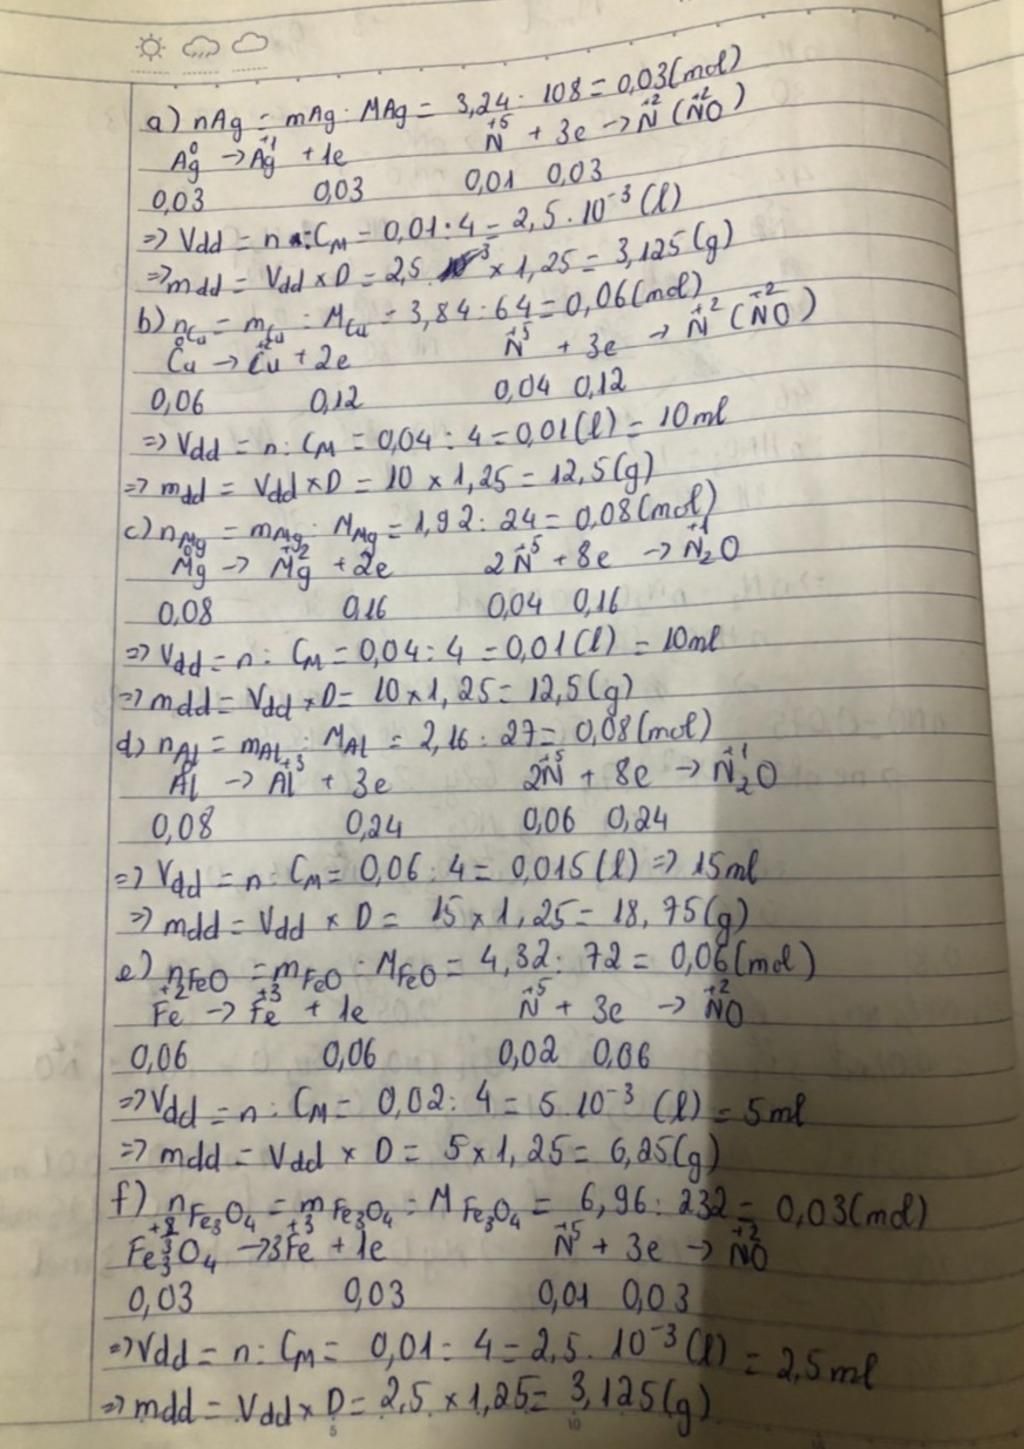 a) nAg = mAg : MAg = 3,24 : 108 = 0,03 (mol)
Ag⁰ → Ag⁺¹ + 1e N⁺⁵ + 3e → N⁺² (N⁺²O)
0,03 0,03 0,01 0,03
=> Vdd = n : CM = 0,01 : 4 = 2,5 . 10⁻³ (l)
=> mdd = Vdd x D = 2,5 x 1,25 = 3,125 (g)
b) nCu = mCu : MCu = 3,84 : 64 = 0,06 (mol)
Cu⁰ → Cu⁺² + 2e N⁺⁵ + 3e → N⁺² (N⁺²O)
0,06 0,12 0,04 0,12
=> Vdd = n : CM = 0,04 : 4 = 0,01 (l) = 10 ml
=> mdd = Vdd x D = 10 x 1,25 = 12,5 (g)
c) nMg = mMg : MMg = 1,92 : 24 = 0,08 (mol)
Mg⁰ → Mg⁺² + 2e 2N⁺⁵ + 8e → N⁺¹₂O
0,08 0,16 0,04 0,16
=> Vdd = n : CM = 0,04 : 4 = 0,01 (l) = 10 ml
=> mdd = Vdd x D = 10 x 1,25 = 12,5 (g)
d) nAl = mAl : MAl = 2,16 : 27 = 0,08 (mol)
Al → Al⁺³ + 3e 2N⁺⁵ + 8e → N⁺¹₂O
0,08 0,24 0,06 0,24
=> Vdd = n : CM = 0,06 : 4 = 0,015 (l) => 15 ml
=> mdd = Vdd x D = 15 x 1,25 = 18,75 (g)
e) nFeO = mFeO : MFeO = 4,32 : 72 = 0,06 (mol)
Fe⁺² → Fe⁺³ + 1e N⁺⁵ + 3e → N⁺²O
0,06 0,06 0,02 0,06
=> Vdd = n : CM = 0,02 : 4 = 5 . 10⁻³ (l) = 5 ml
=> mdd = Vdd x D = 5 x 1,25 = 6,25 (g)
f) nFe₃O₄ = mFe₃O₄ : MFe₃O₄ = 6,96 : 232 = 0,03 (mol)
Fe₃O₄ → 3Fe⁺³ + 1e N⁺⁵ + 3e → N⁺²O
0,03 0,03 0,01 0,03
=> Vdd = n : CM = 0,01 : 4 = 2,5 . 10⁻³ (l) = 2,5 ml
=> mdd = Vdd x D = 2,5 x 1,25 = 3,125 (g)
5 10